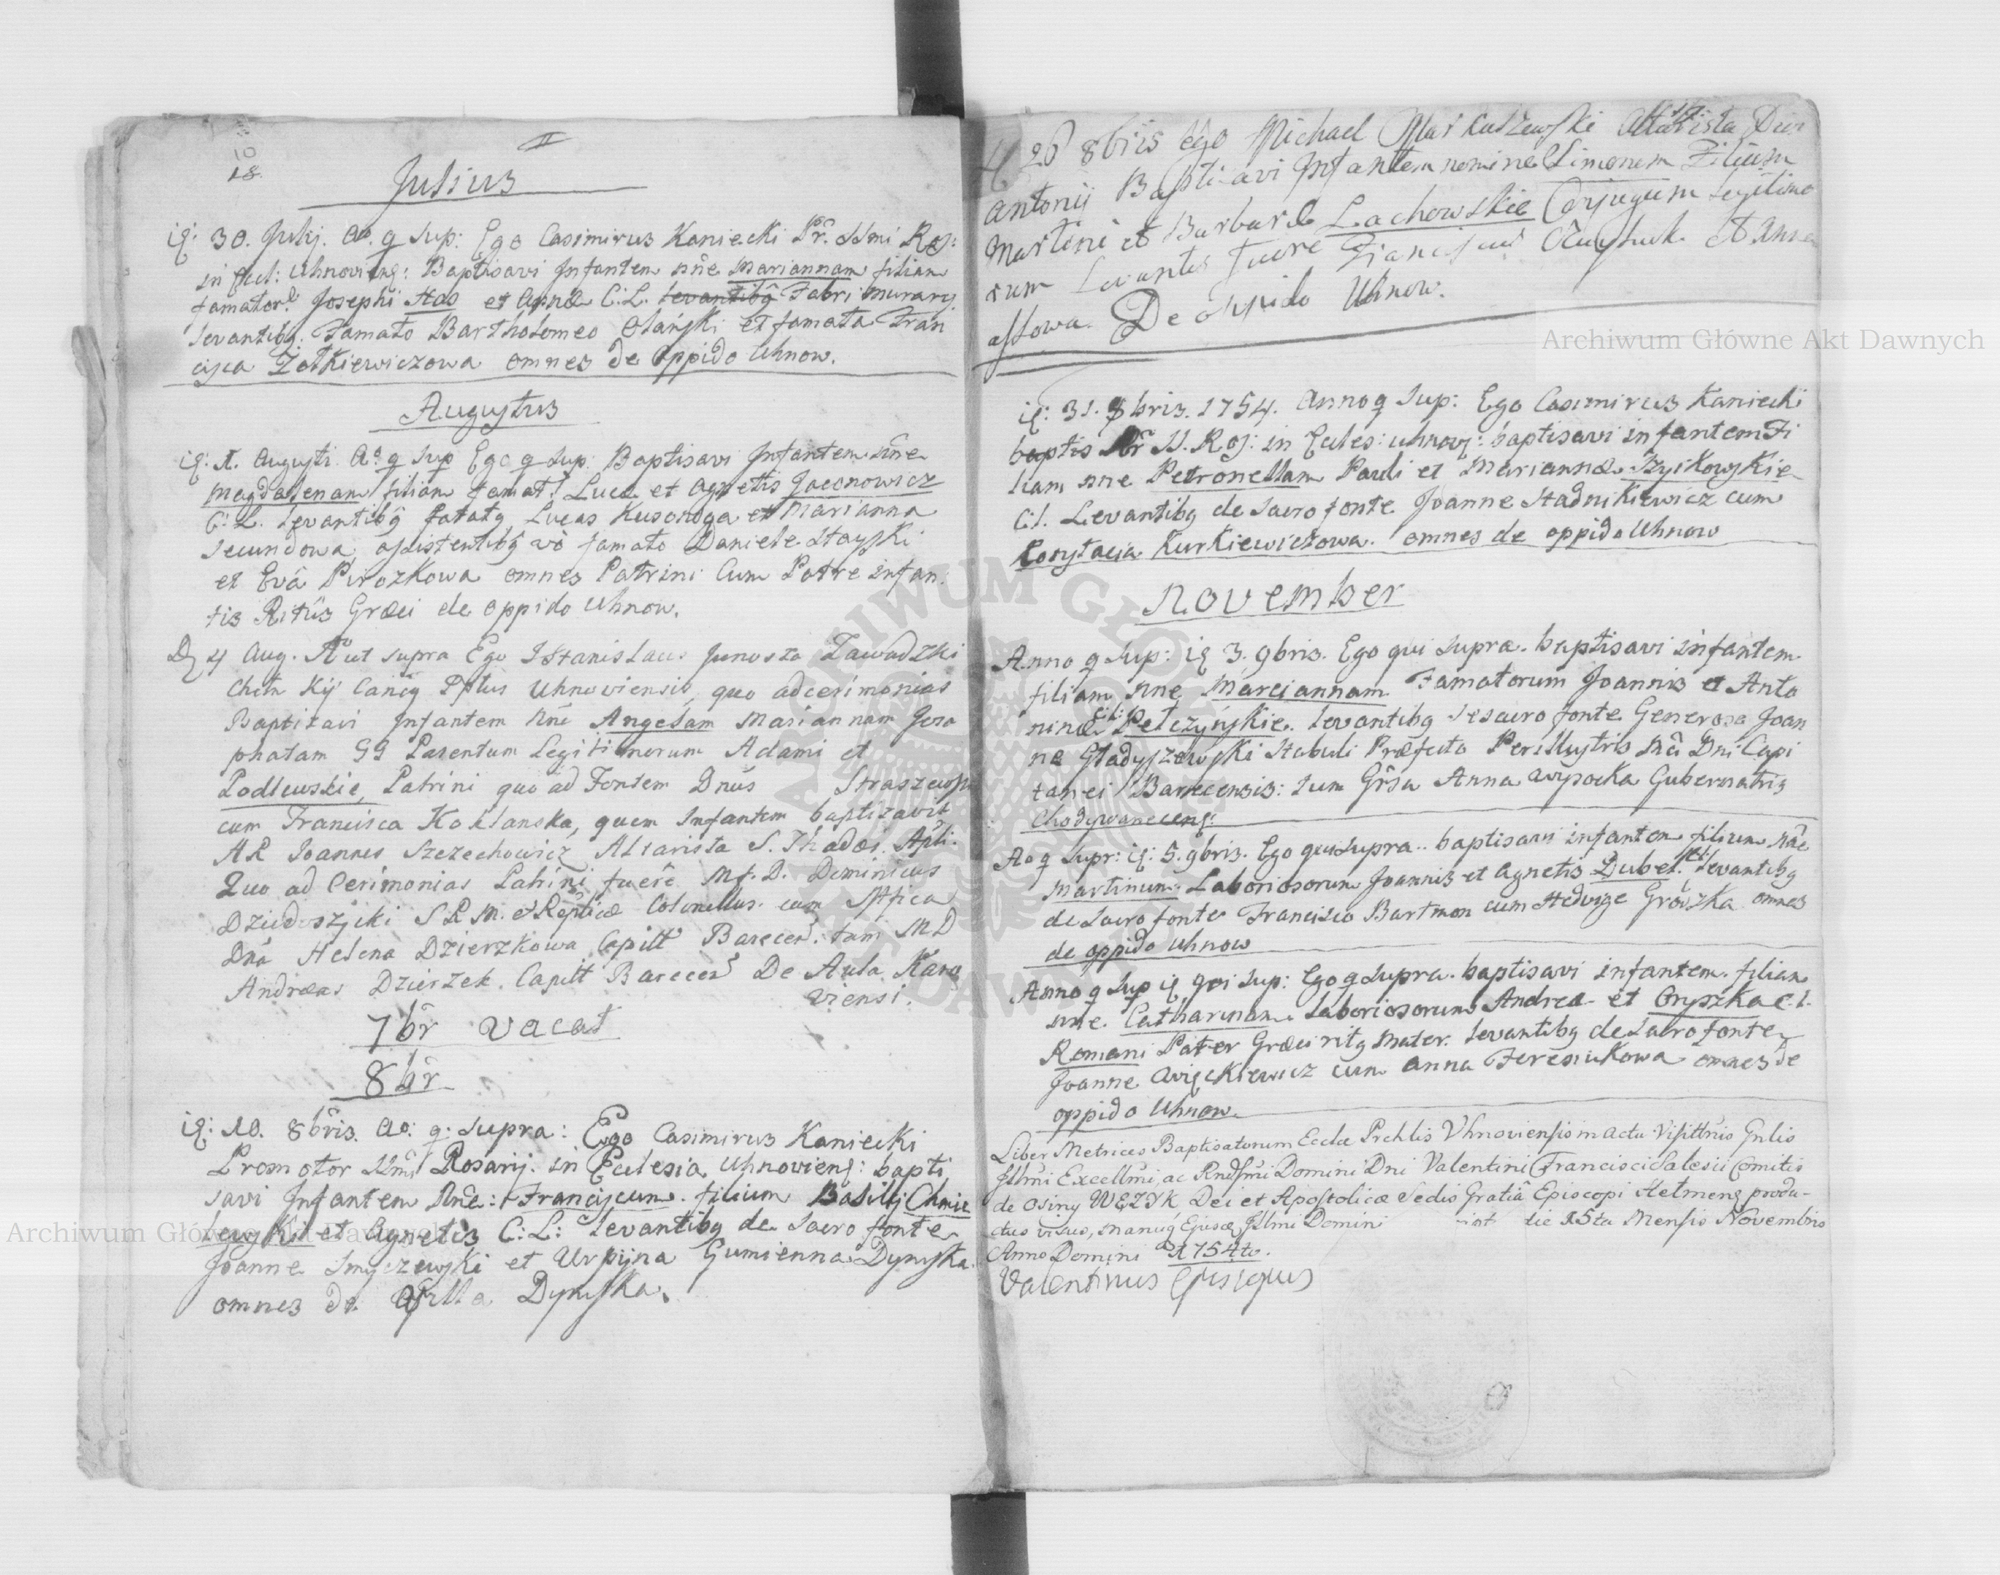 10
18.
II
Julius
iq: 30. Julij. Ao. q sup: Ego Casimirus Kaniecki Pr. SSmi Ros:
in Eccl: Uhnovieng: Baptisavi Infantem nne Mariannam filiam
famator. Josephi Has et Annæ C: L. levantibg Fabri murarij
levantibg. Famato Bartholomeo Olański et famata Fran
cisca Żółkiewiczowa omnes de Oppido Uhnow.
Augustus
iq: 1. Augusti Ao q sup Ego q sup: Baptisavi Infantem nne
Magdalenam filiam famat: Lucæ et Agnetis Jaconowicz
C: L. levantibg Lucas Kusonoga et Marianna
Secundowa, assistentibg vo famato Daniele Stayski
et Eva Pirozkowa omnes Patrini Cum Patre infan
tis Ritus Græci de oppido Uhnow.
D 4 Aug. Ao ut supra Ego Stanislaus Junosza Zawadzki
Ptus Uhnoviensis, quo ad cerimonias
Baptizavi Infantem nne Angelam Mariannam Josa
phatam GG Parentum Legitimorum Adami et
Podlewskie, Patrini quo ad Fontem Dnus Straszewski
cum Francisca Koklanska, quem Infantem baptizavit
AR Joannes Szczechowicz Altarista S. Thadæi Apli.
Quo ad Cerimonias Patrini fuere Mf. D. Dominicus
Dzieduszycki S R M. et Reipticæ Colonellus cum Mfica
Dna Helena Dzierzkowa Capitt Barecen. tam M D
Andreas Dzierzek. Capitt Barecen De Aula Karo
viensi.
7br vacat
8br
iq: 10. 8bris. Ao: q: supra: Ego Casimirus Kaniecki
Promotor SSmi Rosarij. in Ecclesia Uhnovieng: bapti
savi Infantem Nne: Franciscum. filium Basilij Chmie
lewski et Agnetis C: L: levantibg de sacro fonte
Joanne Smyczewski et Urpijna Gumienna Dynyska.
omnes de Villa Dynyska.
26 8bris ego Michael Markuszewski Altarista Divi
Antonij Baptisavi Infantem nomine Simonem Filium
Martini et Barbaræ Lachowskie Conjugum legitimo
rum Levantes fuere Franciscus et Anna
assowa. De oppido Uhnow.
iq: 31. 8bris. 1754. Anno q sup: Ego Casimirus Kaniecki
baptis Pr SS. Ros: in Eccles: uhnov: baptisavi infantem Fi
liam nne Petronellam Pauli et Mariannæ Szyikowskie
C. l. Levantibg de sacro fonte Joanne Stadnikiewicz cum
Konstacia Kurkiewiczowa. omnes de oppido Uhnow
November
Anno q sup: iq 3. 9bris. Ego qui supra. baptisavi infantem
filiam nne Marciannam Famatorum Joannis et Anto
ninæ C: L: Pełczyńskie. levantibg de sacro fonte Generosa Joan
ne Gładyszewski Stabuli Præfecto Perillustris Mci Dni Capi
tanei Barecensis: cum Grsa Anna Wysocka Gubernatris
Chodywaneceng:
Ao q supr: iq: 5. 9bris. Ego qui supra.. baptisavi infantem filium nne
Martinum Laboriosorum Joannis et Agnetis Dubel. levantibg
de sacro fonte Francisco Bartmon cum Hedvige Grószka omnes
de oppido Uhnow
Anno q sup iq qui sup: Ego q supra. baptisavi infantem. filiam
nne. Catharinam. laboriosorum Andrea et Oryszka C. l.
Romani Pater Græci ritg Mater. levantibg de sacro fonte
Joanne Więckiewicz cum Anna Feresiukowa omnes de
oppido Uhnow.
Liber Metrices Baptisatorum Eccle Prchlis Uhnoviensis in actu Visittnis Gnlis
Illmi Excellmi, ac Rndssmi Domini Dni Valentini Francisci Salesii Comitis
de Osiny WĘŻYK Dei et Apostolicæ Sedis Gratia Episcopi Helmens produ-
ctus visus, manug Ejusde Illmi Domini die 15ta Mensis Novembris
Anno Domini 1754to.
Valentinus Episcopus
Archiwum Główne Akt Dawnych
Archiwum Główne Akt Dawnych
ARCHIWUM GŁÓWNE AKT DAWNYCH